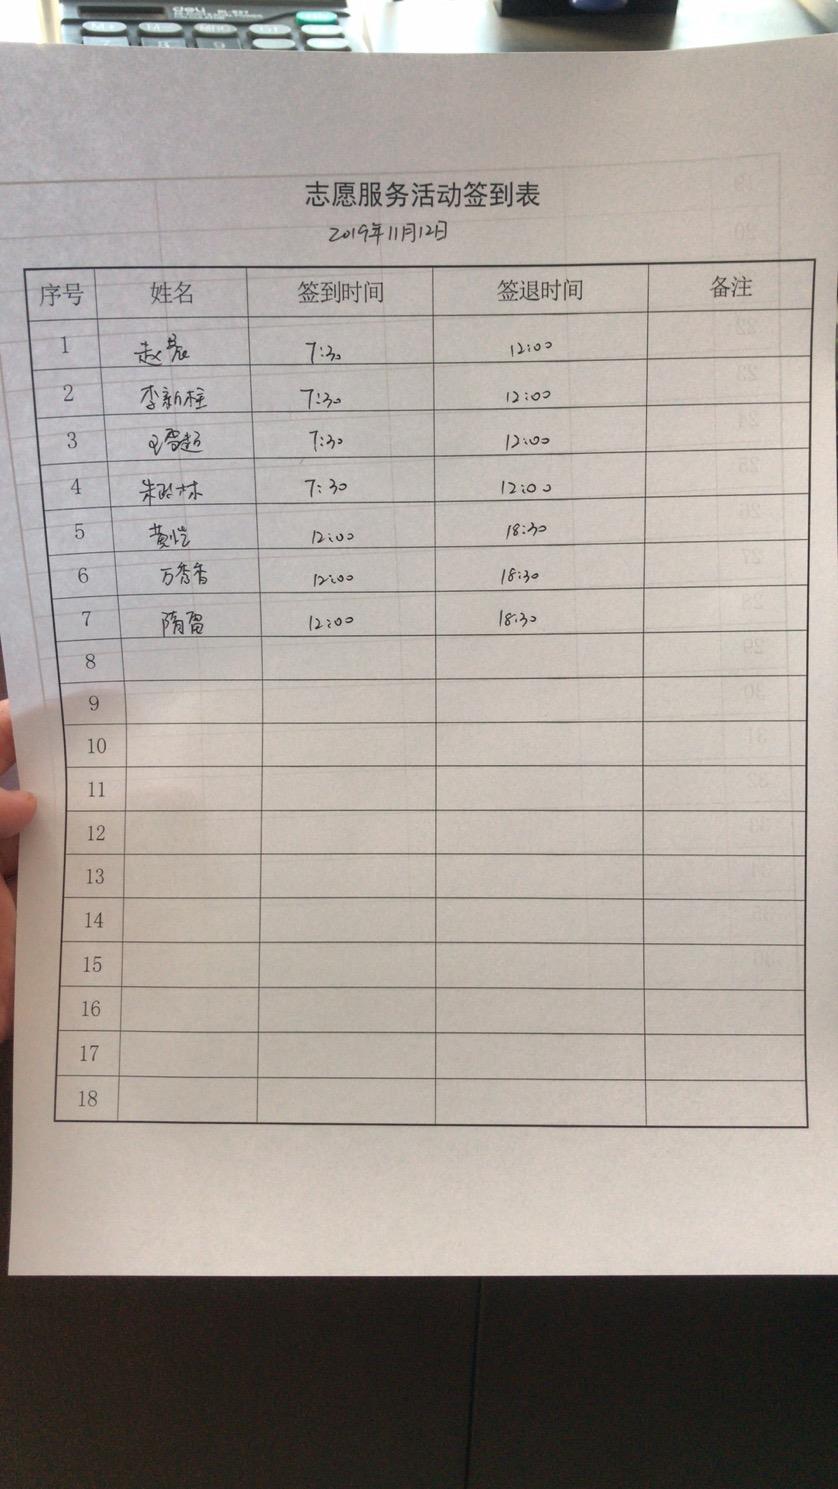 deli
志愿服务活动签到表
2019年11月12日
序号 姓名 签到时间 签退时间 备注
1 赵晨 7:30 12:00
2 李新桂 7:30 12:00
3 7:30 12:00
4 朱政林 7:30 12:00
5 黄恺 12:00 18:30
6 万秀香 12:00 18:30
7 隋雷 12:00 18:30
8
9
10
11
12
13
14
15
16
17
18